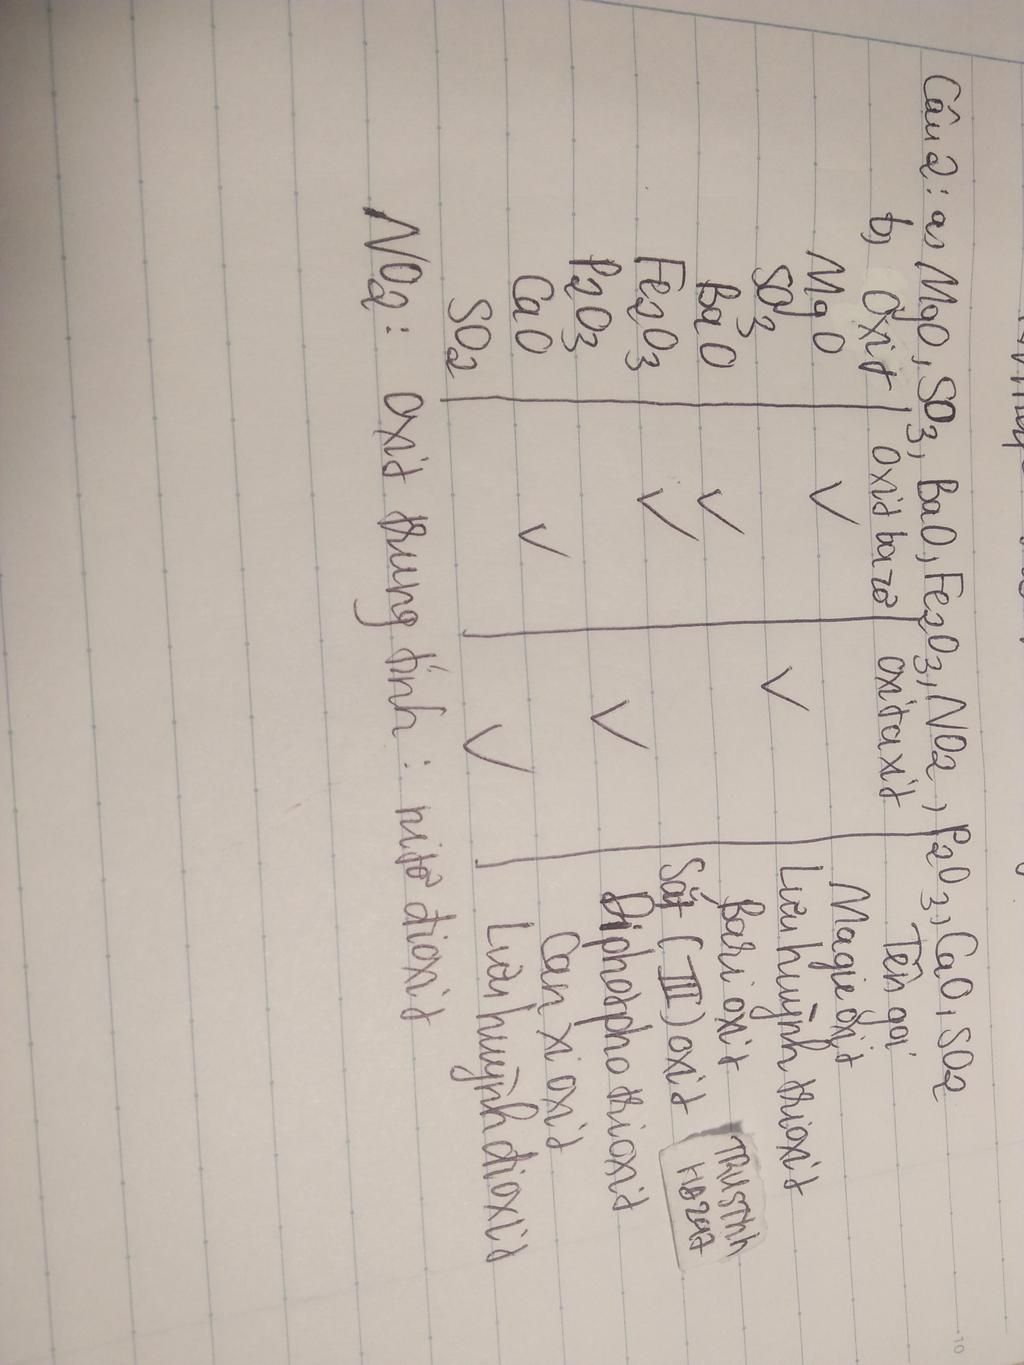 Câu 2: a, MgO, SO3, BaO, Fe2O3, NO2, P2O3, CaO, SO2
b, Oxit oxit bazơ oxit axit Tên gọi
MgO ✓ Magie oxit
SO3 ✓ Lưu huỳnh trioxit
BaO ✓ Bari oxit
Fe2O3 ✓ Sắt (III) oxit
P2O3 ✓ Điphotpho trioxit
CaO ✓ Can xi oxit
SO2 ✓ Lưu huỳnh đioxit
NO2: oxit trung tính: nitơ đioxit
10